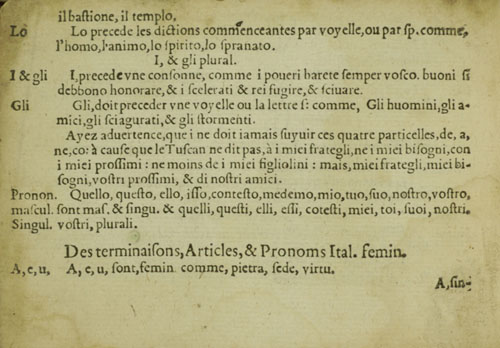 il bastione, il templo,
Lo Lo precede les dictions commenceantes par voyelle, ou par sp. comme,
l'homo, l'animo, lo spirito, lo spranato.
I, & gli plural.
I & gli I, precede vne consonne, comme i poueri harete semper vosco. buoni si
debbono honorare, & i scelerati & rei fugire, & sciuare.
Gli Gli, doit preceder vne voyelle ou la lettre s: comme, Gli huomini, gli a-
mici, gli sciagurati, & gli stormenti.
Ayez aduertence, que i ne doit iamais suyuir ces quatre particelles, de, a,
ne, co: à cause que le Tuscan ne dit pas, à i miei frategli, ne i miei bisogni, con
i miei prossimi: ne moins de i miei figliolini: mais, miei frategli, miei bi-
sogni, vostri prossimi, & di nostri amici.
Pronon. Quello, questo, ello, isso, contesto, medemo, mio, tuo, suo, nostro, vostro,
mascul. sont mas. & singu. & quelli, questi, elli, essi, cotesti, miei, toi, suoi, nostri.
Singul. vostri, plurali.
Des terminaisons, Articles, & Pronoms Ital. femin.
A, e, u, A, e, u, sont, femin comme, pietra, sede, virtu.
A, sin-